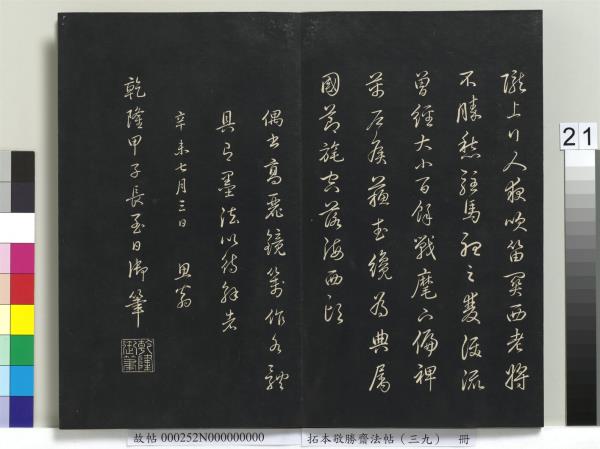 隴上行人夜吹笛關西老將
不勝愁駐馬聽之雙淚流
曾經大小百餘戰麾下偏裨
萬戶侯蘇武纔為典屬
國節旄空落海西頭
偶書高麗鏡箋作各體
具有墨法以待解者
辛未七月三日 思翁
乾隆甲子長至日御筆
乾隆御筆
21
故帖 000252N000000000 拓本敬勝齋法帖（三九） 冊